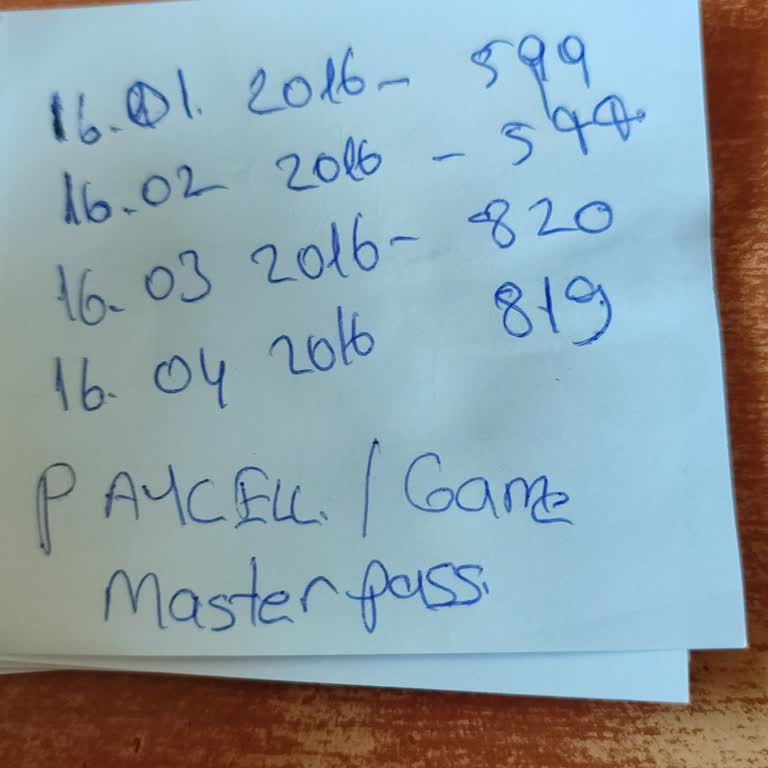 16.01. 2016 - 599
16.02 2016 -
16.03 2016 - 820
16.04 2016 819
PAYCELL. / Game
Masterpass.